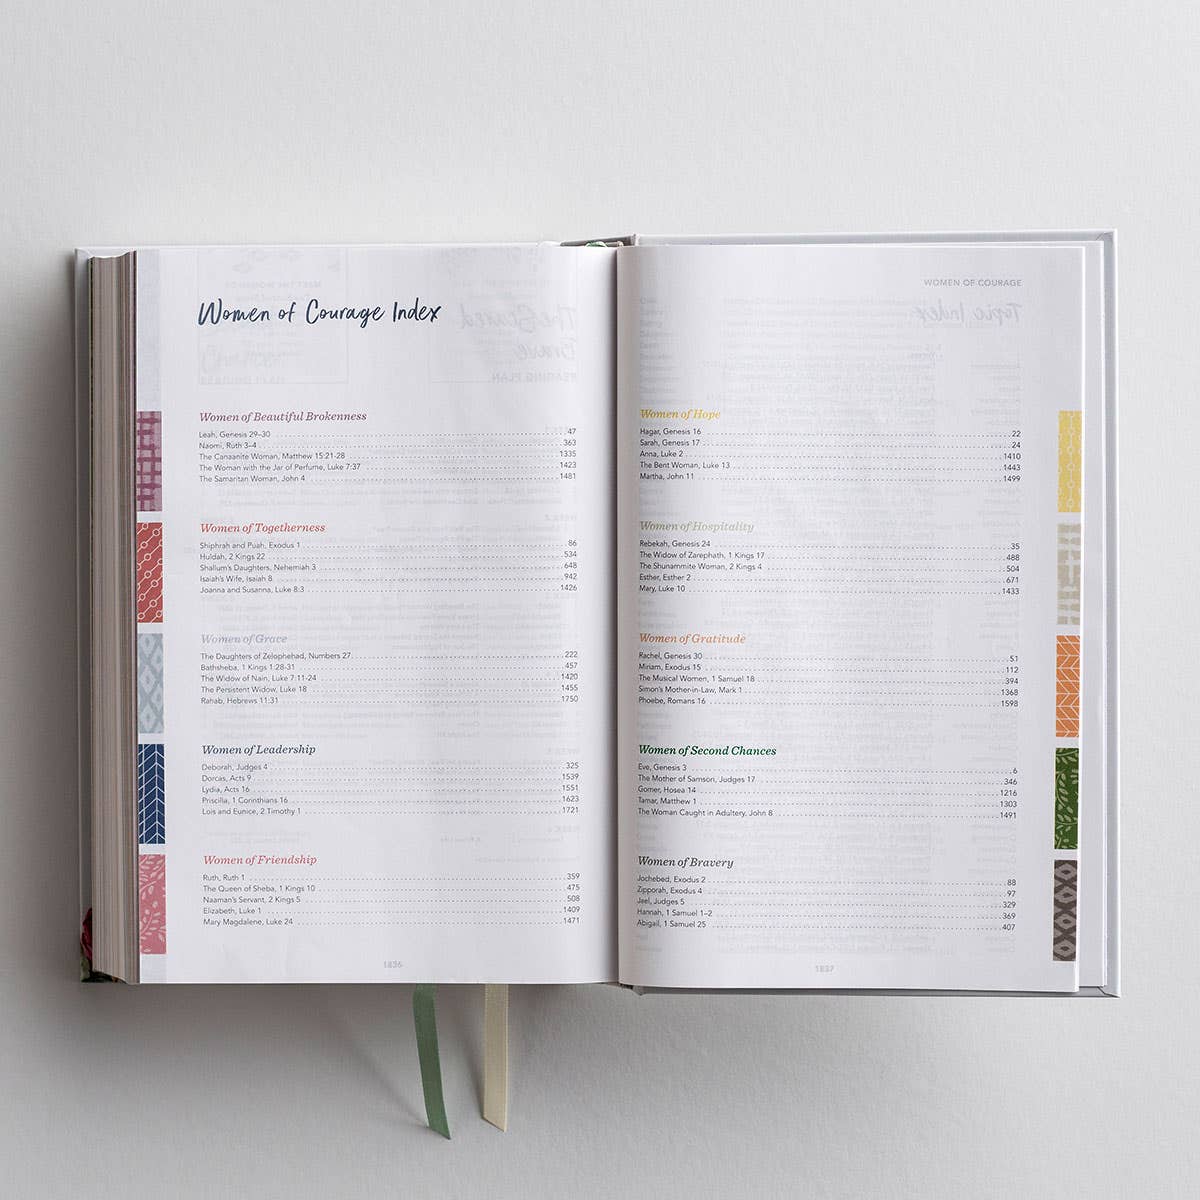 Women of Courage Index
Women of Beautiful Brokenness
Leah, Genesis 29–30 47
Naomi, Ruth 3–4 363
The Canaanite Woman, Matthew 15:21-28 1335
The Woman with the Jar of Perfume, Luke 7:37 1423
The Samaritan Woman, John 4 1481
Women of Togetherness
Shiphrah and Puah, Exodus 1 86
Huldah, 2 Kings 22 534
Shallum's Daughters, Nehemiah 3 648
Isaiah's Wife, Isaiah 8 942
Joanna and Susanna, Luke 8:3 1426
Women of Grace
The Daughters of Zelophehad, Numbers 27 222
Bathsheba, 1 Kings 1:28-31 457
The Widow of Nain, Luke 7:11-24 1420
The Persistent Widow, Luke 18 1455
Rahab, Hebrews 11:31 1750
Women of Leadership
Deborah, Judges 4 325
Dorcas, Acts 9 1539
Lydia, Acts 16 1551
Priscilla, 1 Corinthians 16 1623
Lois and Eunice, 2 Timothy 1 1721
Women of Friendship
Ruth, Ruth 1 359
The Queen of Sheba, 1 Kings 10 475
Naaman's Servant, 2 Kings 5 508
Elizabeth, Luke 1 1409
Mary Magdalene, Luke 24 1471
1836
WOMEN OF COURAGE
Women of Hope
Hagar, Genesis 16 22
Sarah, Genesis 17 24
Anna, Luke 2 1410
The Bent Woman, Luke 13 1443
Martha, John 11 1499
Women of Hospitality
Rebekah, Genesis 24 35
The Widow of Zarephath, 1 Kings 17 488
The Shunammite Woman, 2 Kings 4 504
Esther, Esther 2 671
Mary, Luke 10 1433
Women of Gratitude
Rachel, Genesis 30 51
Miriam, Exodus 15 112
The Musical Women, 1 Samuel 18 394
Simon's Mother-in-Law, Mark 1 1368
Phoebe, Romans 16 1598
Women of Second Chances
Eve, Genesis 3 6
The Mother of Samson, Judges 17 346
Gomer, Hosea 14 1216
Tamar, Matthew 1 1303
The Woman Caught in Adultery, John 8 1491
Women of Bravery
Jochebed, Exodus 2 88
Zipporah, Exodus 4 97
Jael, Judges 5 329
Hannah, 1 Samuel 1–2 369
Abigail, 1 Samuel 25 407
1837